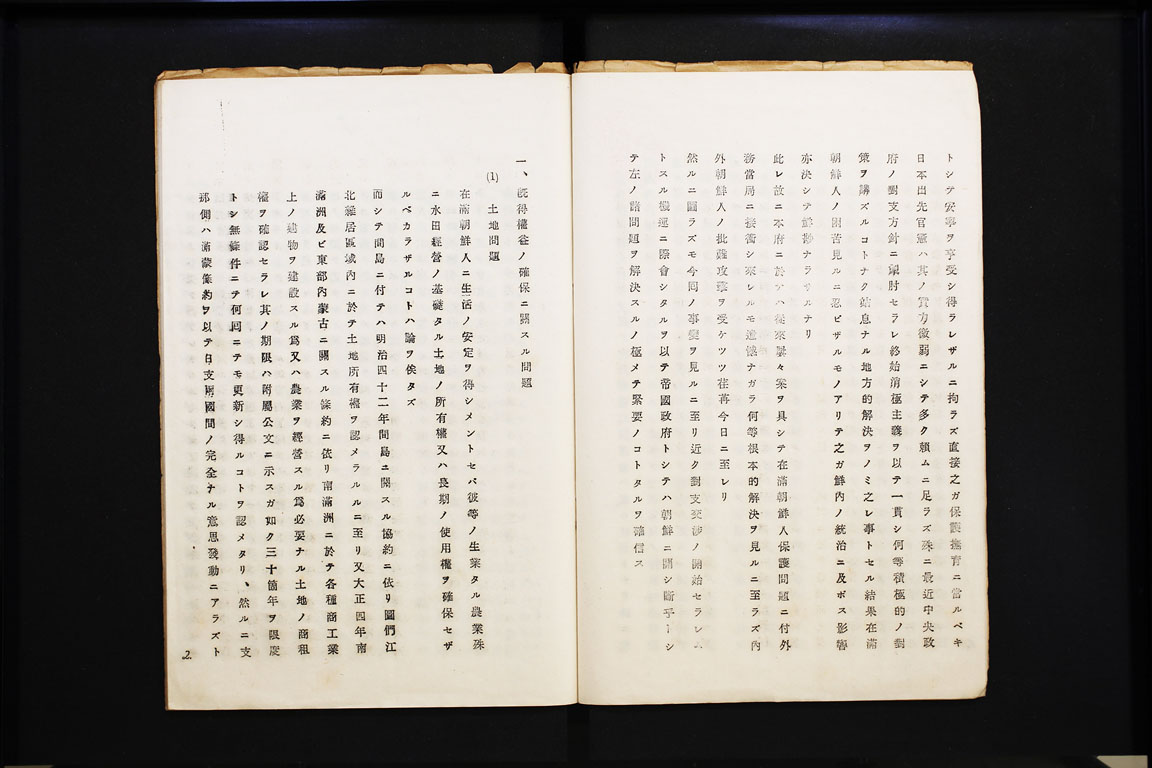 トシテ安寧ヲ享受シ得ラレザルニ拘ラズ直接之ガ保護撫育ニ當ルベキ
日本出先官憲ハ其ノ實力微弱ニシテ多ク賴ムニ足ラズ殊ニ最近中央政
府ノ對支方針ニ掣肘セラレ終始消極主義ヲ以テ一貫シ何等積極的ノ對
策ヲ講ズルコトナク姑息ナル地方的解決ヲノミ之レ事トセル結果在滿
朝鮮人ノ困苦見ルニ忍ビザルモノアリテ之ガ鮮內ノ統治ニ及ボス影響
亦決シテ鮮尠ナラザルナリ
此レ故ニ本府ニ於テハ從來屡々案ヲ具シテ在滿朝鮮人保護問題ニ付外
務當局ニ接衝シ來レルモ遺憾ナガラ何等根本的解決ヲ見ルニ至ラズ內
外朝鮮人ノ批難攻擊ヲ受ケツツ荏苒今日ニ至レリ
然ルニ圖ラズモ今囘ノ事變ヲ見ルニ至リ近ク對支交涉ノ開始セラレム
トスル機運ニ際會シタルヲ以テ帝國政府トシテハ朝鮮ニ關シ斷乎トシ
テ左ノ諸問題ヲ解決スルノ極メテ緊要ノコトタルヲ確信ス
一、旣得權益ノ確保ニ關スル問題
(1) 土地問題
在滿朝鮮人ニ生活ノ安定ヲ得シメントセバ彼等ノ生業タル農業殊
ニ水田經營ノ基礎タル土地ノ所有權又ハ長期ノ使用權ヲ確保セザ
ルベカラザルコトハ論ヲ俟タズ
而シテ間島ニ付テハ明治四十二年間島ニ關スル協約ニ依リ圖們江
北雜居區域內ニ於テ土地所有權ヲ認メラルルニ至リ又大正四年南
滿洲及ビ東部內蒙古ニ關スル條約ニ依リ南滿洲ニ於テ各種商工業
上ノ建物ヲ建設スル爲又ハ農業ヲ經營スル爲必要ナル土地ノ商租
權ヲ確認セラレ其ノ期限ハ附屬公文ニ示スガ如ク三十箇年ヲ限度
トシ無條件ニテ何囘ニテモ更新シ得ルコトヲ認メタリ、然ルニ支
那側ハ滿蒙條約ヲ以テ日支兩國間ノ完全ナル意思發動ニアラズト
2.